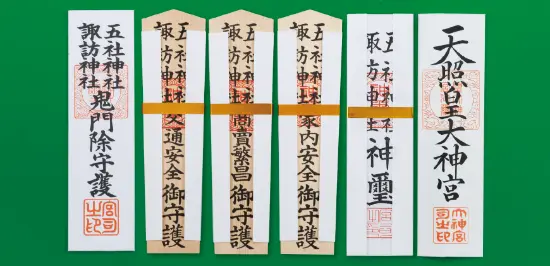 五社神社
諏訪神社
鬼門除守護
宮司之印
五社神社
諏訪神社
交通安全
御守護
五社神社
諏訪神社
商賣繁昌
御守護
五社神社
諏訪神社
家内安全
御守護
五社神社
諏訪神社
神璽
天照皇大神宮